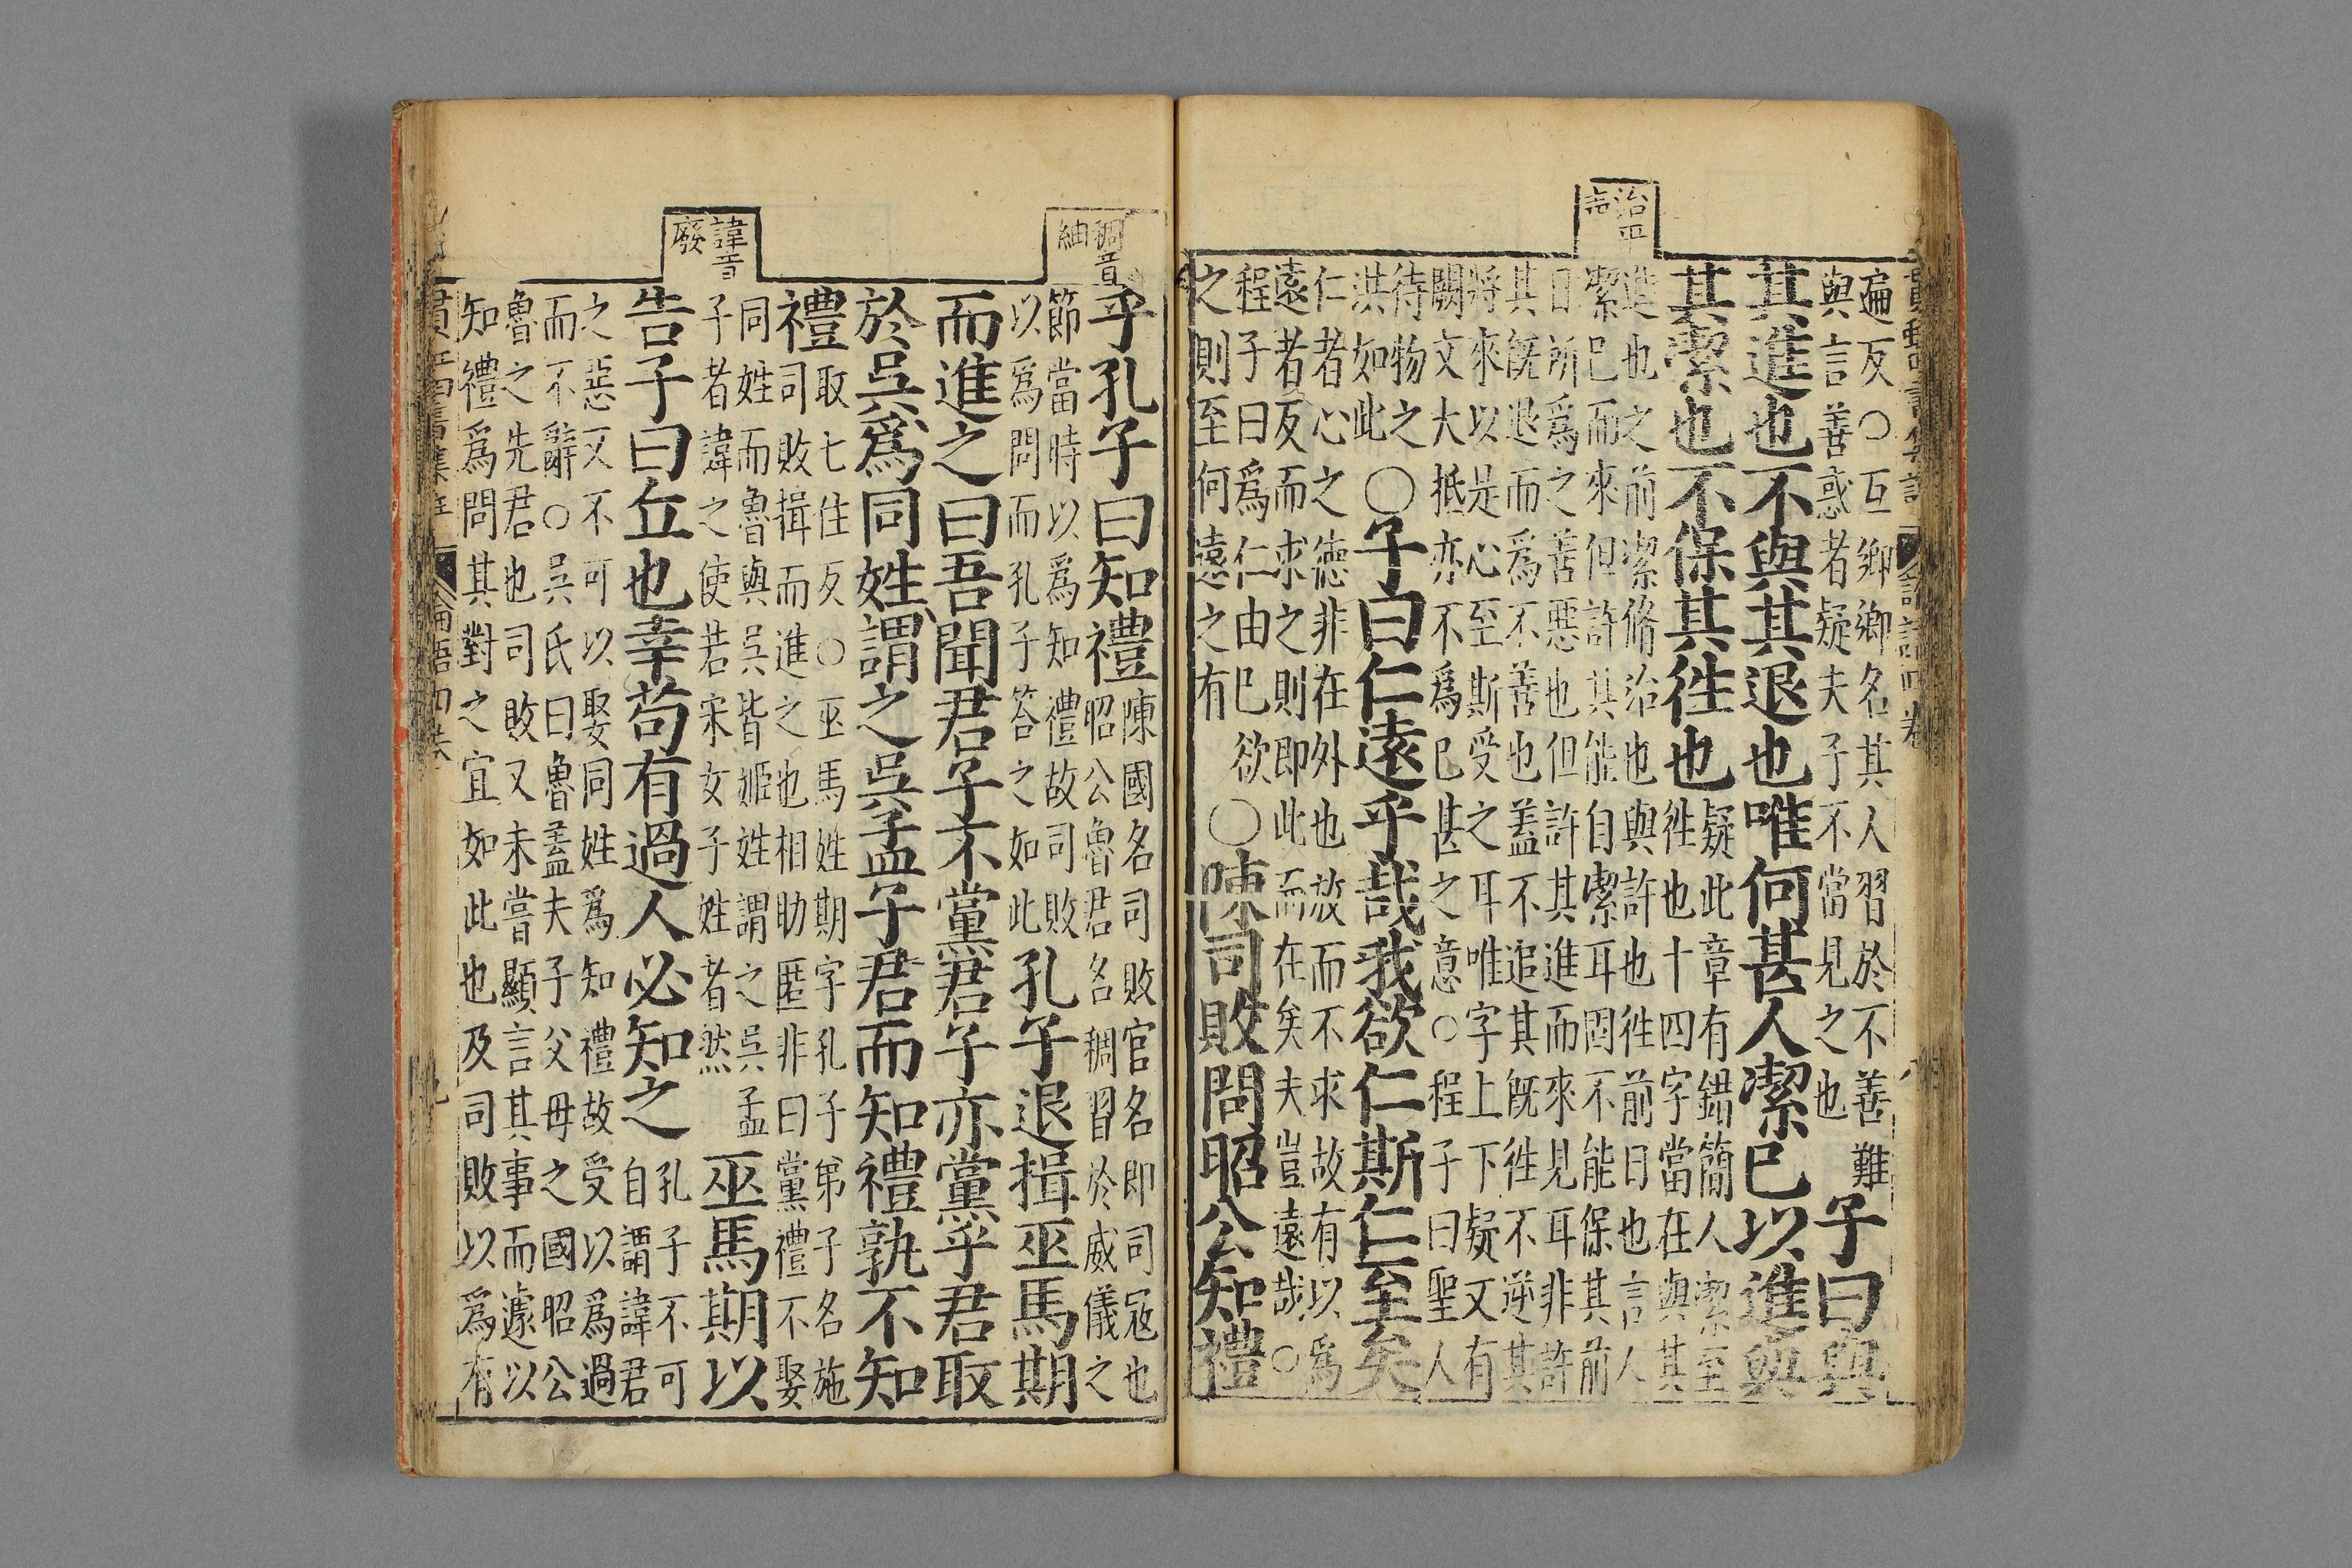 治平
声
遍反○互鄉鄉名其人習於不善難
與言善惑者疑夫子不當見之也
子曰與
其進也不與其退也唯何甚人潔已以進與
其潔也不保其徃也
疑此章有錯簡人潔至
徃也十四字當在與其
進也之前潔脩治也與許也徃前日也言人
潔已而來但許其能自潔耳固不能保其前
日所爲之善惡也但許其進而來見耳非許
其旣退而爲不善也蓋不追其旣徃不逆其
將來以是心至斯受之耳唯字上下疑又有
闕文大抵亦不爲已甚之意○程子曰聖人
待物之
洪如此
○子曰仁遠乎哉我欲仁斯仁至矣
仁者心之德非在外也放而不求故有以爲
遠者反而求之則即此而在矣夫豈遠哉○
程子曰爲仁由已欲
之則至何遠之有
○陳司敗問昭公知禮
稠音
紬
乎孔子曰知禮
陳國名司敗官名即司寇也
昭公魯君名稠習於威儀之
節當時以爲知禮故司敗
以爲問而孔子答之如此
孔子退揖巫馬期
而進之曰吾聞君子不黨君子亦黨乎君取
於吳爲同姓謂之吳孟子君而知禮孰不知
禮
取七住反○巫馬姓期字孔子弟子名施
司敗揖而進之也相助匿非曰黨禮不娶
同姓而魯與吳皆姬姓謂之吳孟
子者諱之使若宋女子姓者然
巫馬期以
諱音
廢
告子曰丘也幸苟有過人必知之
孔子不可
自謂諱君
之惡又不可以娶同姓爲知禮故受以爲過
而不辭○吳氏曰魯蓋夫子父母之國昭公
魯之先君也司敗又未嘗顯言其事而遽以
知禮爲問其對之宜如此也及司敗以爲有